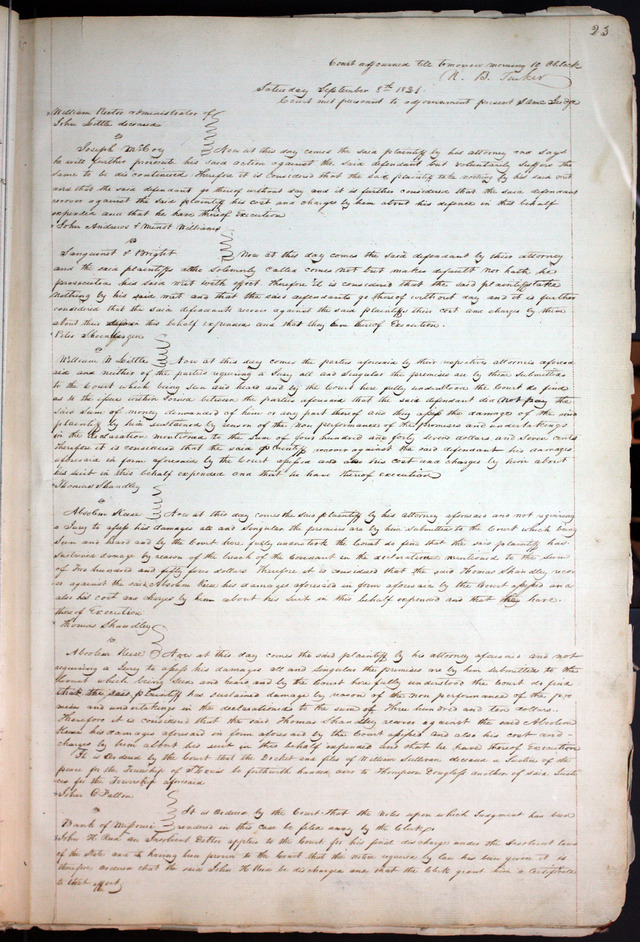 23
Court adjourned till tomorrow morning 10 Oclock
N. B. Tucker
Saturday September 8th 1821
Court met pursuant to adjournment present Same Judge
William Rector administrator of
John Little deceased
vs
Joseph McCoy Now at this day comes the said plaintiff by his attorney and says
he will further prosecute his said action against the said defendant but voluntarily suffers the
same to be discontinued Therefore it is considered that the said plaintiff take nothing by his said suit
and that the said defendant go thereof without day and it is further considered that the said defendant
recover against the said plaintiff his cost and charges by him about his defence in this behalf
expended and that he have thereof Execution
John Andrews &  Williams
vs
Sanguinet & Bright Now at this day comes the said defendant by their attorney
and the said plaintiffs altho Solemnly Called comes not but makes default nor hath he
prosecuted his said writ with effect therefore it is considered that the said plaintiffs take
nothing by his said writ and that the said defendants go thereof without day and it is further
considered that the said defendants recover against the said plaintiffs their cost and charges by them
about their defence in this behalf expended and that they have thereof Execution.
Peter
vs
William N Little Now at this day comes the parties aforesaid by their respective attornies afores
aid and neither of the parties requiring a Jury all and Singular the premises are by them Submitted
to the Court which being Seen and heard and by the Court here fully understood the Court do find
as to the issue within Joined between the parties aforesaid that the said defendant did not pay the
said sum of money demanded of him or any part thereof and they assess the damages of the said
plaintiff by him sustained by reason of the non performance of the promises and undertakings
in the declaration mentioned to the Sum of four hundred and forty seven dollars and seven cents
therefore it is considered that the said plaintiff recover against the said defendant his damages
aforesaid in form aforesaid by the Court assessed and also his cost and charges by him about
his suit in this behalf expended and that he have thereof execution
Thomas Shandley
vs
Absolem Reese Now at this day comes the said plaintiff by his attorney aforesaid and not requiring
a Jury to assess his damages all and Singular the premises are by him Submitted to the Court which being
Seen and heard and by the Court here fully understood the Court do find that the said plaintiff hath
sustained damage by reason of the breach of the Covenant in the declaration mentioned to the sum
of two hundred and fifty four dollars Therefore it is considered that the said Thomas Shandley reco
ver against the said Absolem Reese his damages aforesaid in form aforesaid by the Court assessed and
also his cost and charges by him about his suit in this behalf expended and that they have
thereof Execution
Thomas Shandley
vs
Absolem Reese Now at this day comes the said plaintiff by his attorney aforesaid and not
requiring a Jury to assess his damages all and singular the premises are by him submitted to the
Court which being Seen and heard and by the Court here fully understood the Court do find
that the said plaintiff has sustained damage by reason of the non performance of the pro
mises and undertakings in the declarations to the sum of Three hundred and two dollars.
Therefore it is considered that the said Thomas Shandley recover against the said Absolem
Reese his damages aforesaid in form aforesaid by the Court assessed and also his cost and
charges by him about his suit in this behalf expended and that he have thereof Execution
It is ordered by the Court that the Docket and files of William Sullivan deceased a Justice of the
peace for the Township of St Louis be forthwith handed over to Thompson Douglass another of said Justi
ces for the Township aforesaid
John C Patton
vs
Bank of Missouri It is ordered by the Court that the notes upon which Judgment has been
rendered in this case be filed away by the Clerk
John H Rua an Insolvent Debtor applies to the Court for his final discharge under the Insolvent laws
of the State and it having been proven to the Court that the notice required by law has been given it is
therefore ordered that the said John H Rua be discharged and that the Clerk grant him a Certificate
to that effect